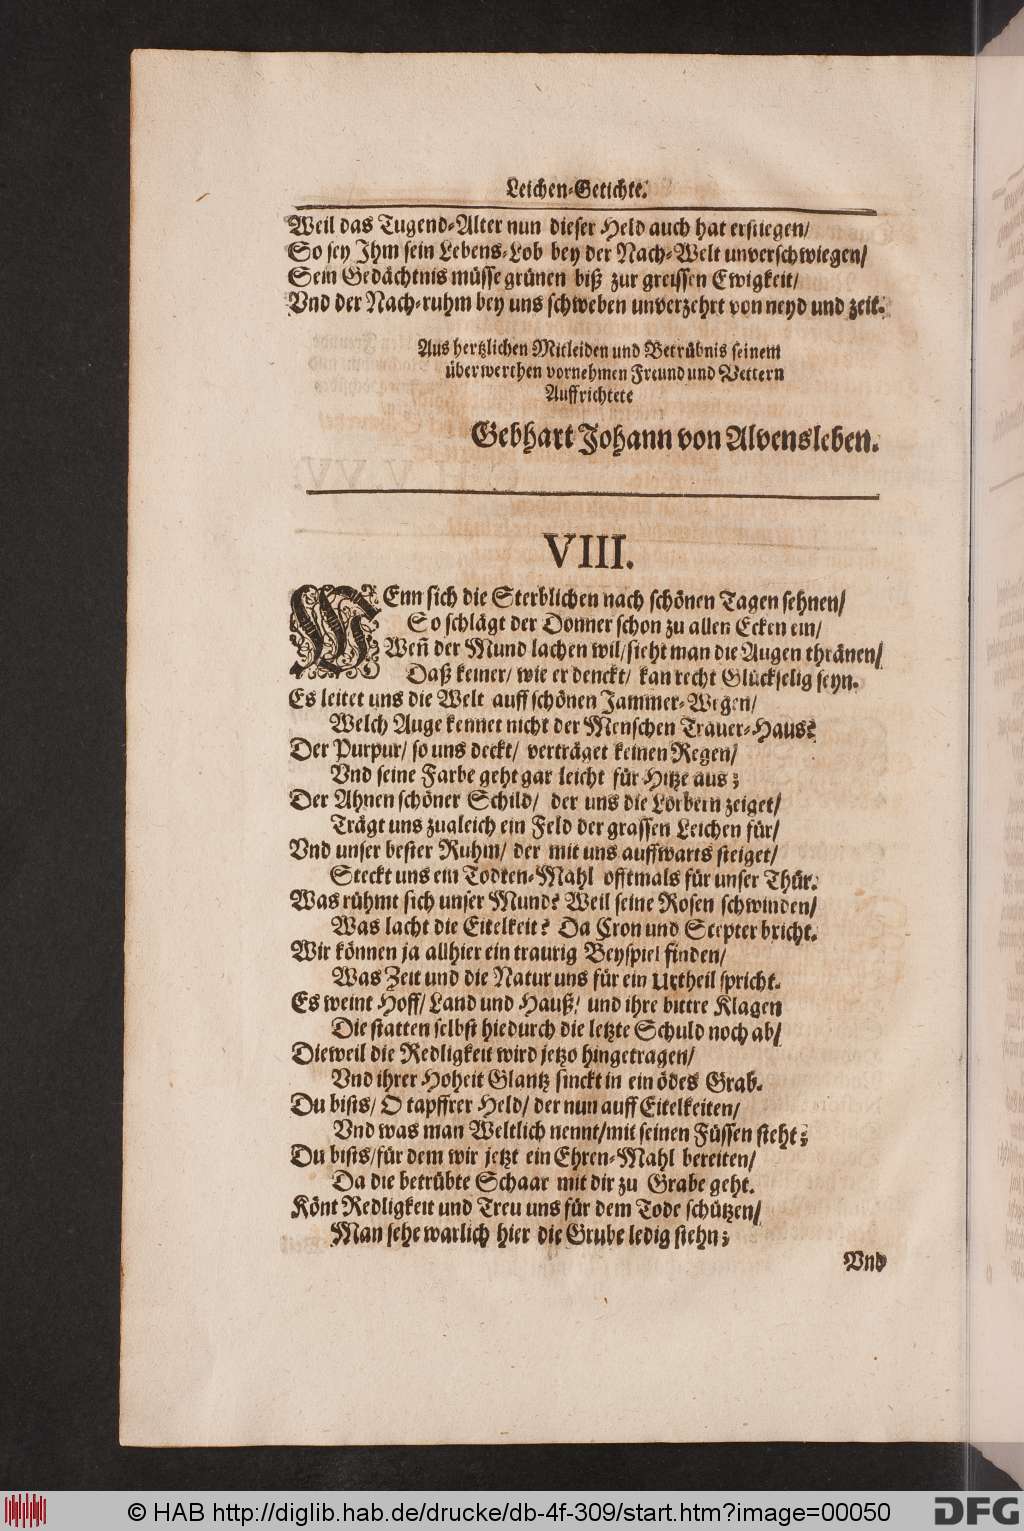 Leichen-Getichte.
Weil das Tugend-Alter nun dieser Held auch hat erstiegen/
So sey Ihm sein Lebens-Lob bey der Nach-Welt unverschwiegen/
Sein Gedächtnis müsse grünen biß zur greissen Ewigkeit/
Vnd der Nach-ruhm bey uns schweben unverzehrt von neyd und zeit.
Aus hertzlichen Mitleiden und Betrübnis seinem
überwerthen vornehmen Freund und Vettern
Auffrichtete
Gebhart Johann von Alvensleben.
VIII.
WEnn sich die Sterblichen nach schönen Tagen sehnen/
So schlägt der Donner schon zu allen Ecken ein/
Weñ der Mund lachen wil/sieht man die Augen thränen/
Daß keiner/ wie er denckt/ kan recht Glückselig seyn.
Es leitet uns die Welt auff schönen Jammer-Wegen/
Welch Auge kennet nicht der Menschen Trauer-Haus?
Der Purpur/ so uns deckt/ verträget keinen Regen/
Vnd seine Farbe geht gar leicht für Hitze aus;
Der Ahnen schöner Schild/ der uns die Lorbern zeiget/
Trägt uns zugleich ein Feld der grassen Leichen für/
Vnd unser bester Ruhm/ der mit uns auffwarts steiget/
Steckt uns ein Todten-Mahl offtmals für unser Thür.
Was rühmt sich unser Mund? Weil seine Rosen schwinden/
Was lacht die Eitelkeit? Da Cron und Scepter bricht.
Wir können ja allhier ein traurig Beyspiel finden/
Was Zeit und die Natur uns für ein Urtheil spricht.
Es weint Hoff/ Land und Hauß/ und ihre bittre Klagen
Die statten selbst hiedurch die letzte Schuld noch ab/
Dieweil die Redligkeit wird jetzo hingetragen/
Vnd ihrer Hoheit Glantz sinckt in ein ödes Grab.
Du bists/ O tapffrer Held/ der nun auff Eitelkeiten/
Vnd was man Weltlich nennt/mit seinen Füssen steht;
Du bists/für dem wir jetzt ein Ehren-Mahl bereiten/
Da die betrübte Schaar mit dir zu Grabe geht.
Könt Redligkeit und Treu uns für dem Tode schützen/
Man sehe warlich hier die Grube ledig stehn;
Vnd
© HAB http://diglib.hab.de/drucke/db-4f-309/start.htm?image=00050
DFG